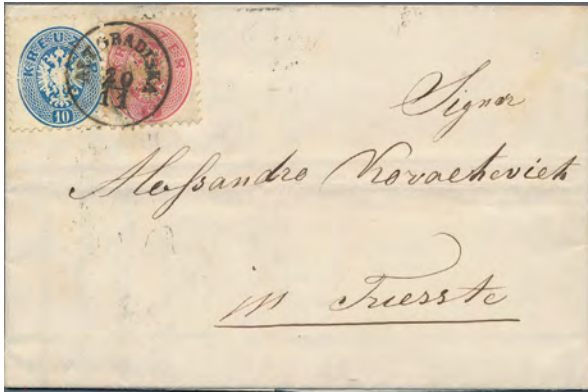 KREUZER
10
KREUZER
10
11
Signor
Alessandro Kovachevich
in Triesste